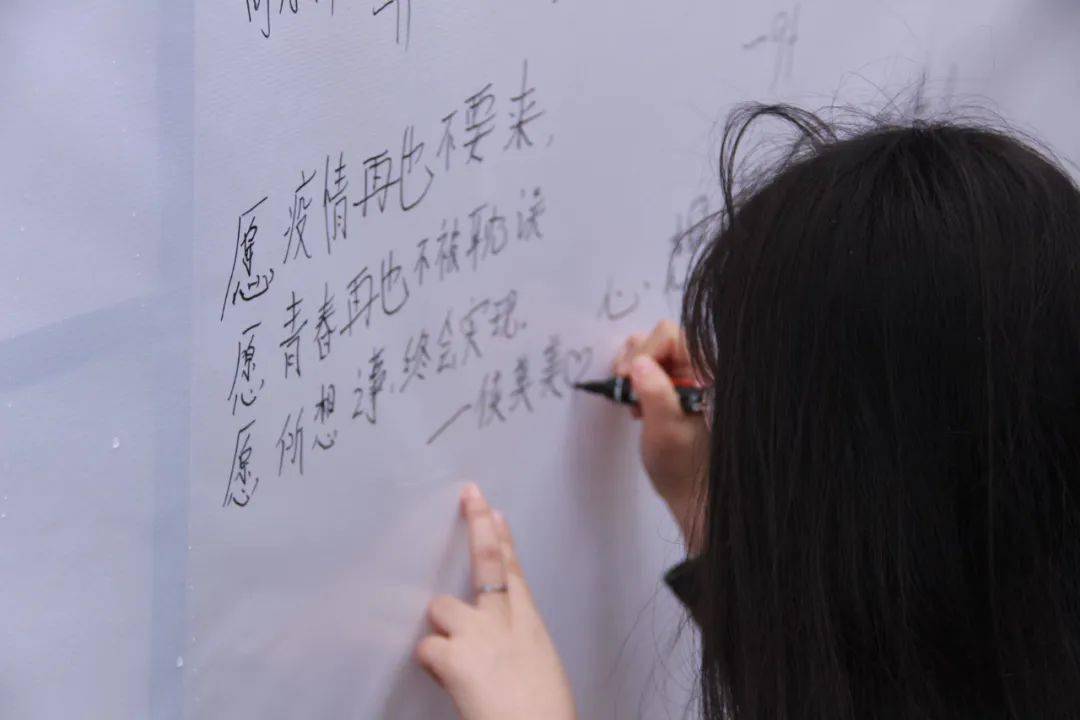 愿疫情再也不要来,
愿青春再也不被耽误
愿所想之事,终会实现.
一侯美美♡
心.